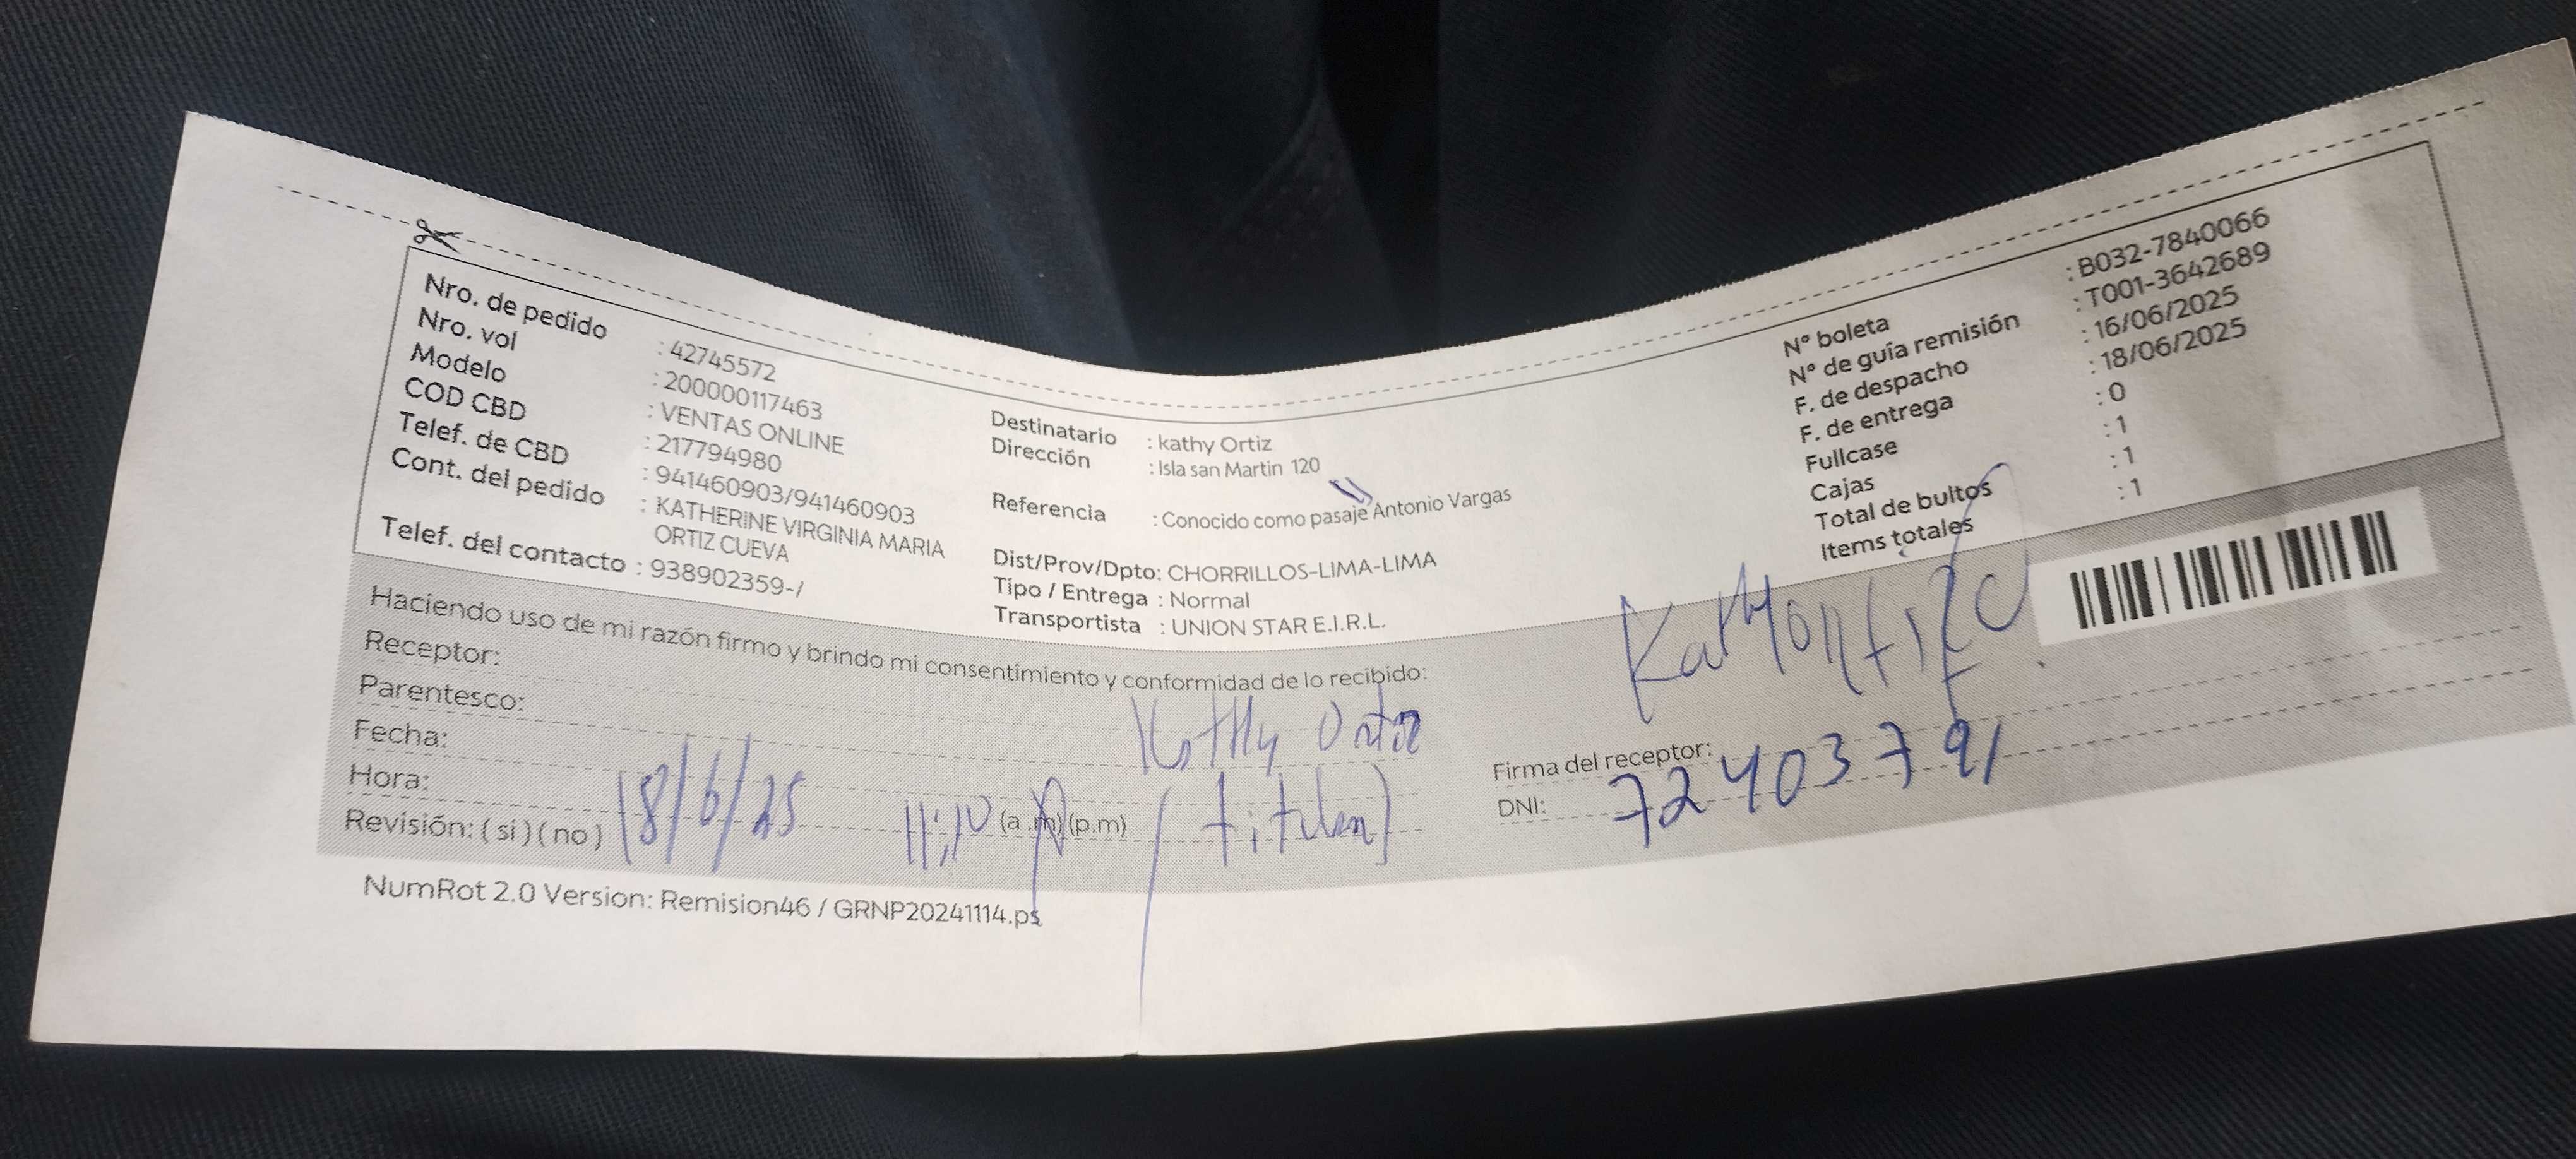 Nro. de pedido : 42745572
Nro. vol : 200000117463
Modelo : VENTAS ONLINE
COD CBD : 217794980
Telef. de CBD : 941460903/941460903
Cont. del pedido : KATHERINE VIRGINIA MARIA
ORTIZ CUEVA
Telef. del contacto : 938902359-/
Destinatario : kathy Ortiz
Dirección : Isla san Martin 120
Referencia : Conocido como pasaje Antonio Vargas
Dist/Prov/Dpto: CHORRILLOS-LIMA-LIMA
Tipo / Entrega : Normal
Transportista : UNION STAR E.I.R.L.
N° boleta : B032-7840066
N° de guía remisión : T001-3642689
F. de despacho : 16/06/2025
F. de entrega : 18/06/2025
Fullcase : 0
Cajas : 1
Total de bultos : 1
Items totales : 1
Haciendo uso de mi razón firmo y brindo mi consentimiento y conformidad de lo recibido:
Receptor: Kathy Ortiz
Parentesco: (titular)
Fecha: 18/6/25
Hora: 11:10 (a.m)(p.m)
Revisión: ( si ) ( no )
Firma del receptor:
DNI: 72403791
NumRot 2.0 Version: Remision46 / GRNP20241114.ps